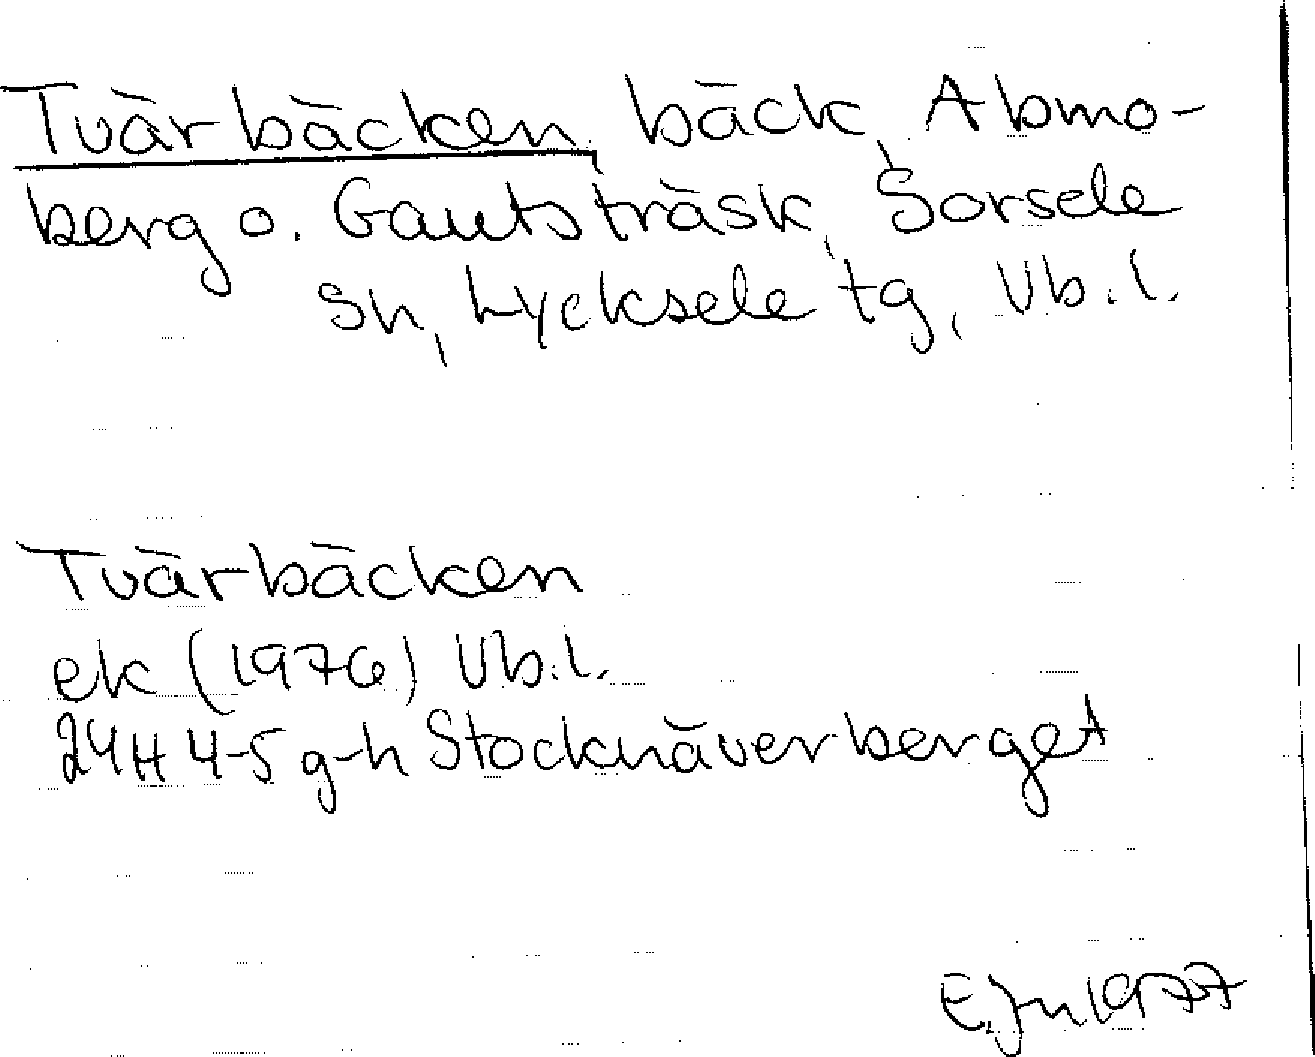 Tvärbäcken, bäck, Abmo-
berg o. Gautsträsk, Sorsele
sn, Lycksele tg, Vb.l.
Tvärbäcken
ek (1976) Vb.l.
24H 4-5 g-h Stocknäverberget
E.Jn 1977